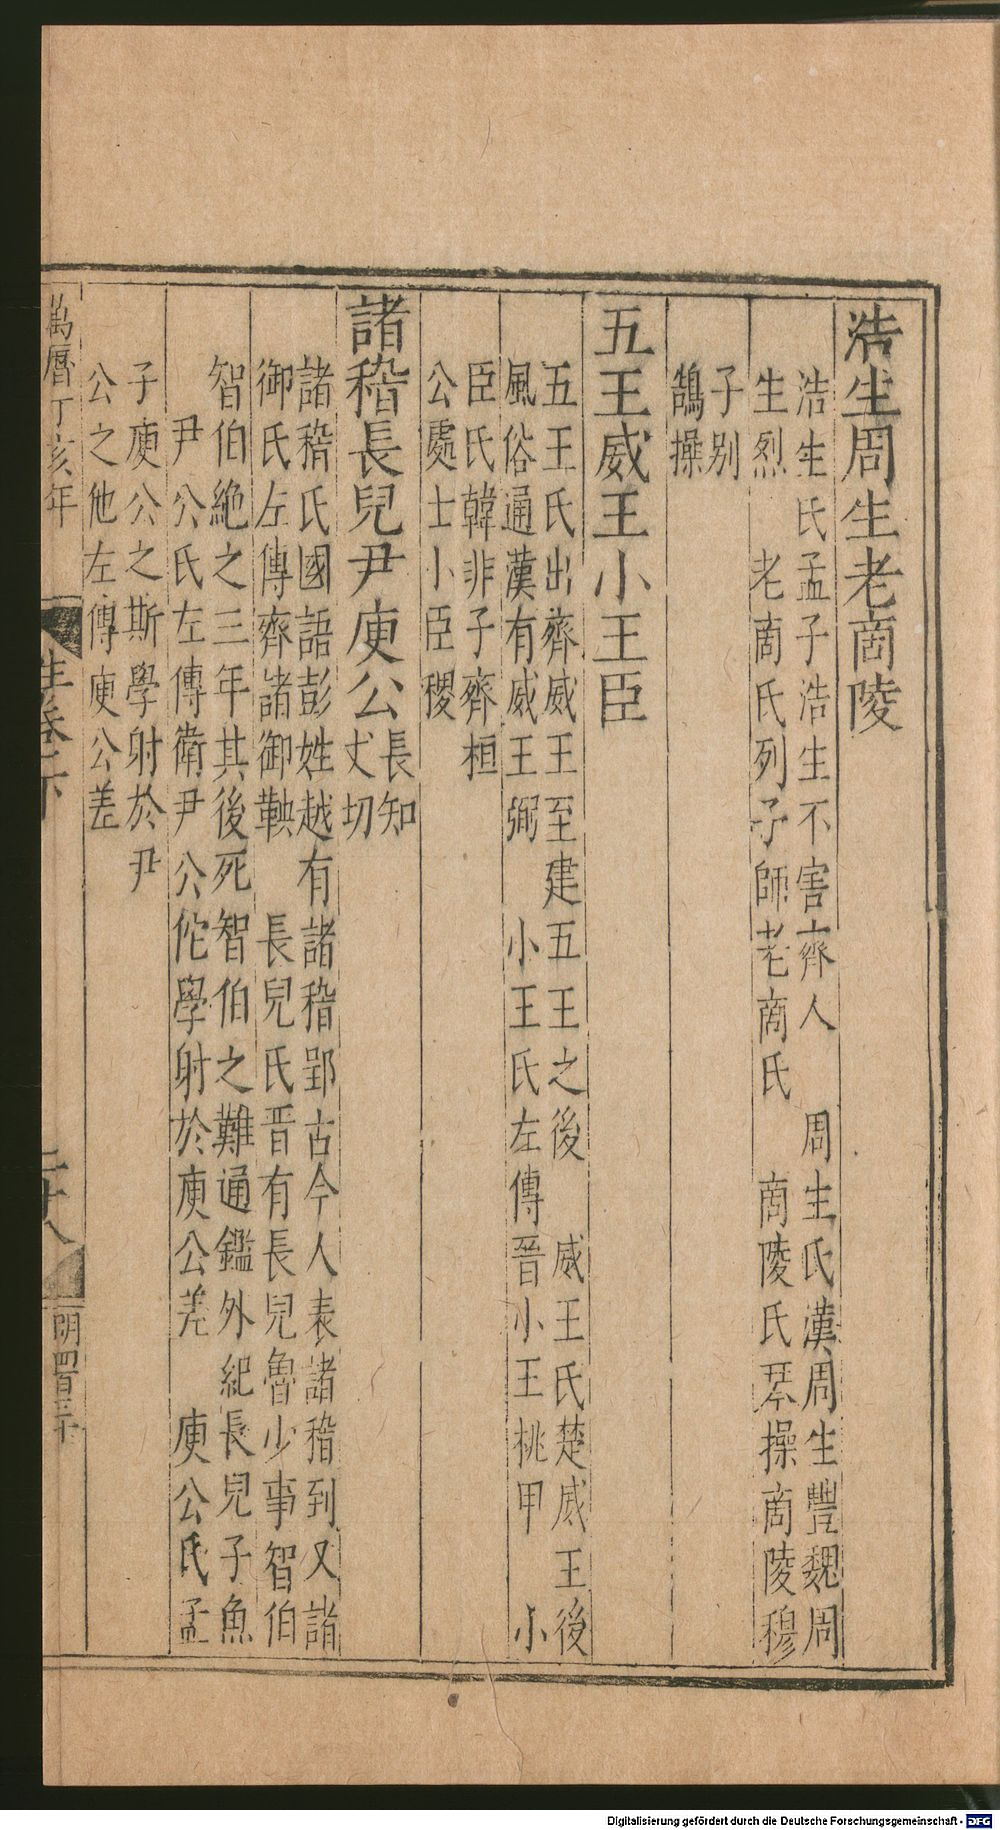 浩生周生老商陵
浩生氏孟子浩生不害齊人　周生氏漢周生豐魏周
生烈　老商氏列子師老商氏　商陵氏琴操商陵穆
子別
鵠操
五王威王小王臣
五王氏出齊威王至建五王之後　威王氏楚威王後
風俗通漢有威王弼　小王氏左傳晉小王桃甲　小
臣氏韓非子齊桓
公處士小臣稷
諸稽長兒尹庾公　長知
丈切
諸稽氏國語彭姓越有諸稽郢古今人表諸稽到又諸
御氏左傳齊諸御鞅　長兒氏晋有長兒魯少事智伯
智伯絶之三年其後死智伯之難通鑑外紀長兒子魚
尹公氏左傳衛尹公佗學射於庾公差　庾公氏孟
子庾公之斯學射於尹
公之他左傳庾公差
萬曆丁亥年
生卷下
二十八
Digitalisierung gefördert durch die Deutsche Forschungsgemeinschaft - DFG